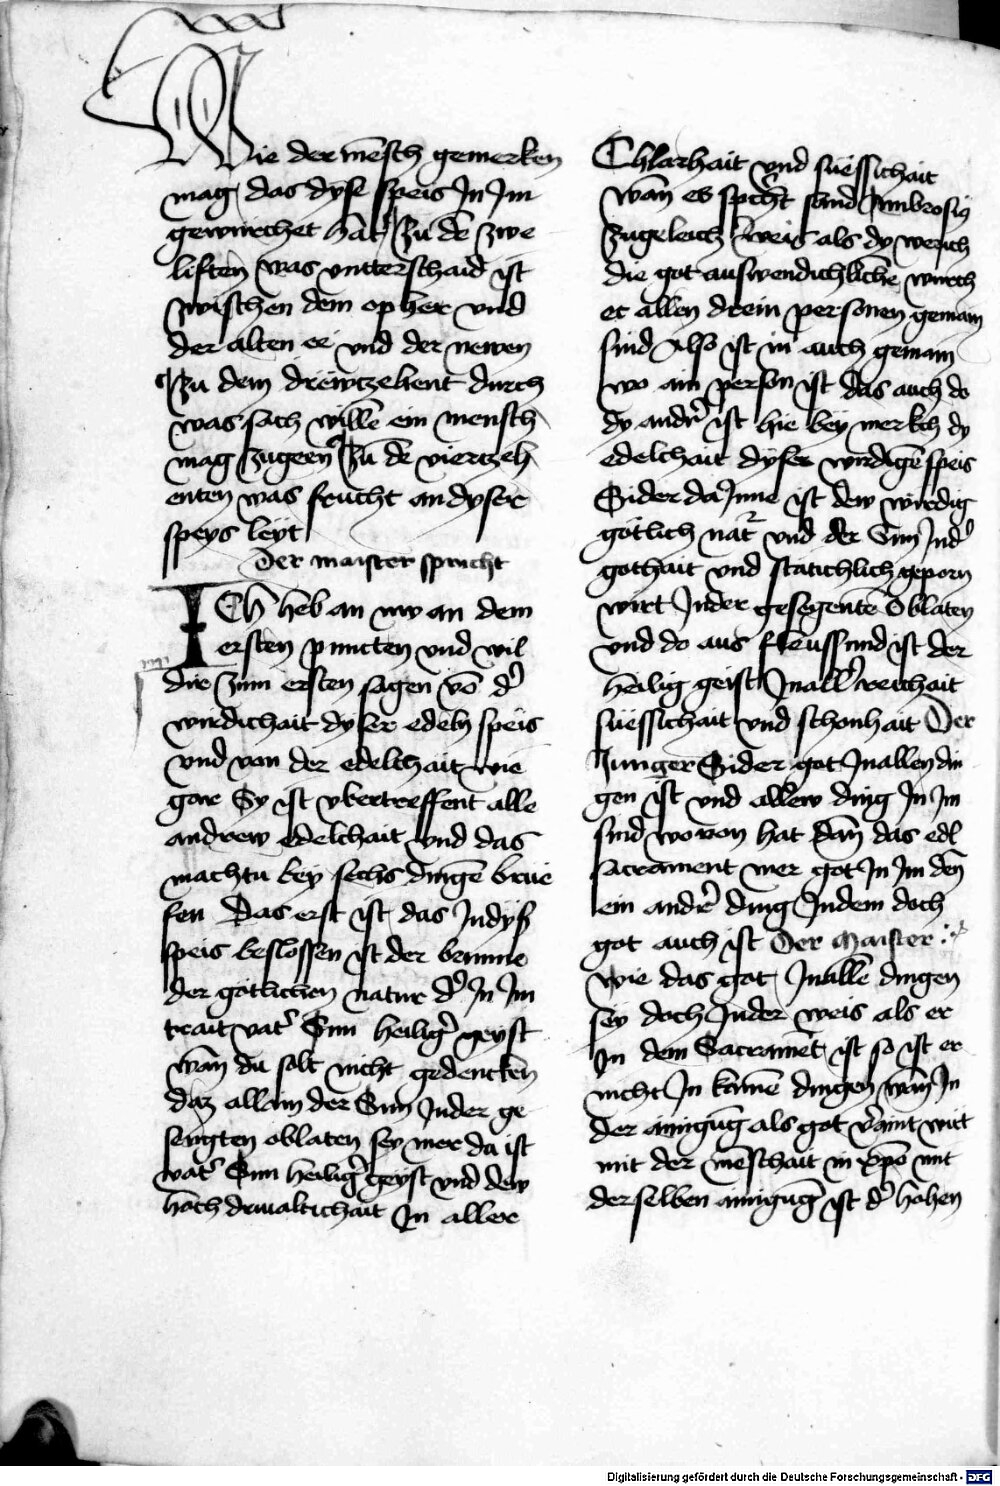 Wie der mēsch gemerken
mag das dyse speis Jn Jm
gewürchet hat Zu dē zwe
liften was vntterschaid ist
zwischen dem opher vnd
der alten ee vnd der newen
Zu dem drewtzehent durch
was sach willē ein mensch
mag zugeen Zu dē viertzeh
enten was frucht an dyser
speys leyt
Der maister spricht
ICh heb an nw an dem
ersten puncten vnd wil
dir zum ersten sagen vō d'
wirdichait dyser edeln speis
vnd von der edelchait wie
gar Sy ist vbertreffent alle
andrew edelchait vnd das
machtu bey sechs dingē brüe
fen Das erst ist das Jn dyser
speis beslossen ist der brunne
der gotlichen natur d' Jn Jm
trait vat' Sun heilig' geyst
wān du solt nicht gedencken
daz allain der Sun Jn der ge
sengten oblaten sey mer da ist
vat' Sun heilig' geyst vnd dew
hoch driualtichait Jn aller
Chlarhait vnd süessichait
wān es spricht sand Ambrosiꝰ
Zugeleich weis als dy werich
die got auswendichlichē wurch
et allen drein personen gemain
sind Also ist in auch gemain
wo ain person ist das auch do
dy andr' ist hie bey merkch dy
edelchait dyser wirdigē speis
Sider da Jnne ist dew wirdig
gotlich nat' vnd der Sun Jn d'
gothait vnd statichlich geporn
wirt Jn der gesegentē Oblaten
vnd do aus fleussund ist der
heilig geist Jn all' reichait
süessichait vnd schonhait Der
Junger Sider got Jn allen din
gen ist vnd allew ding Jn Jm
sind wovon hat dān das edl
sacrament mer got Jn Jm den
ein andr' ding Jn dem doch
got auch ist Der Maister
wie das got Jn allē dingen
sey doch Jn der weis als er
Jn dem Sacramēt ist so ist er
nicht Jn kainē dingen wān Jn
der ainigūg als got v'aint wirt
mit der mēschait in xp̄o mit
der selben ainigūg ist d' hohen
Digitalisierung gefördert durch die Deutsche Forschungsgemeinschaft - DFG